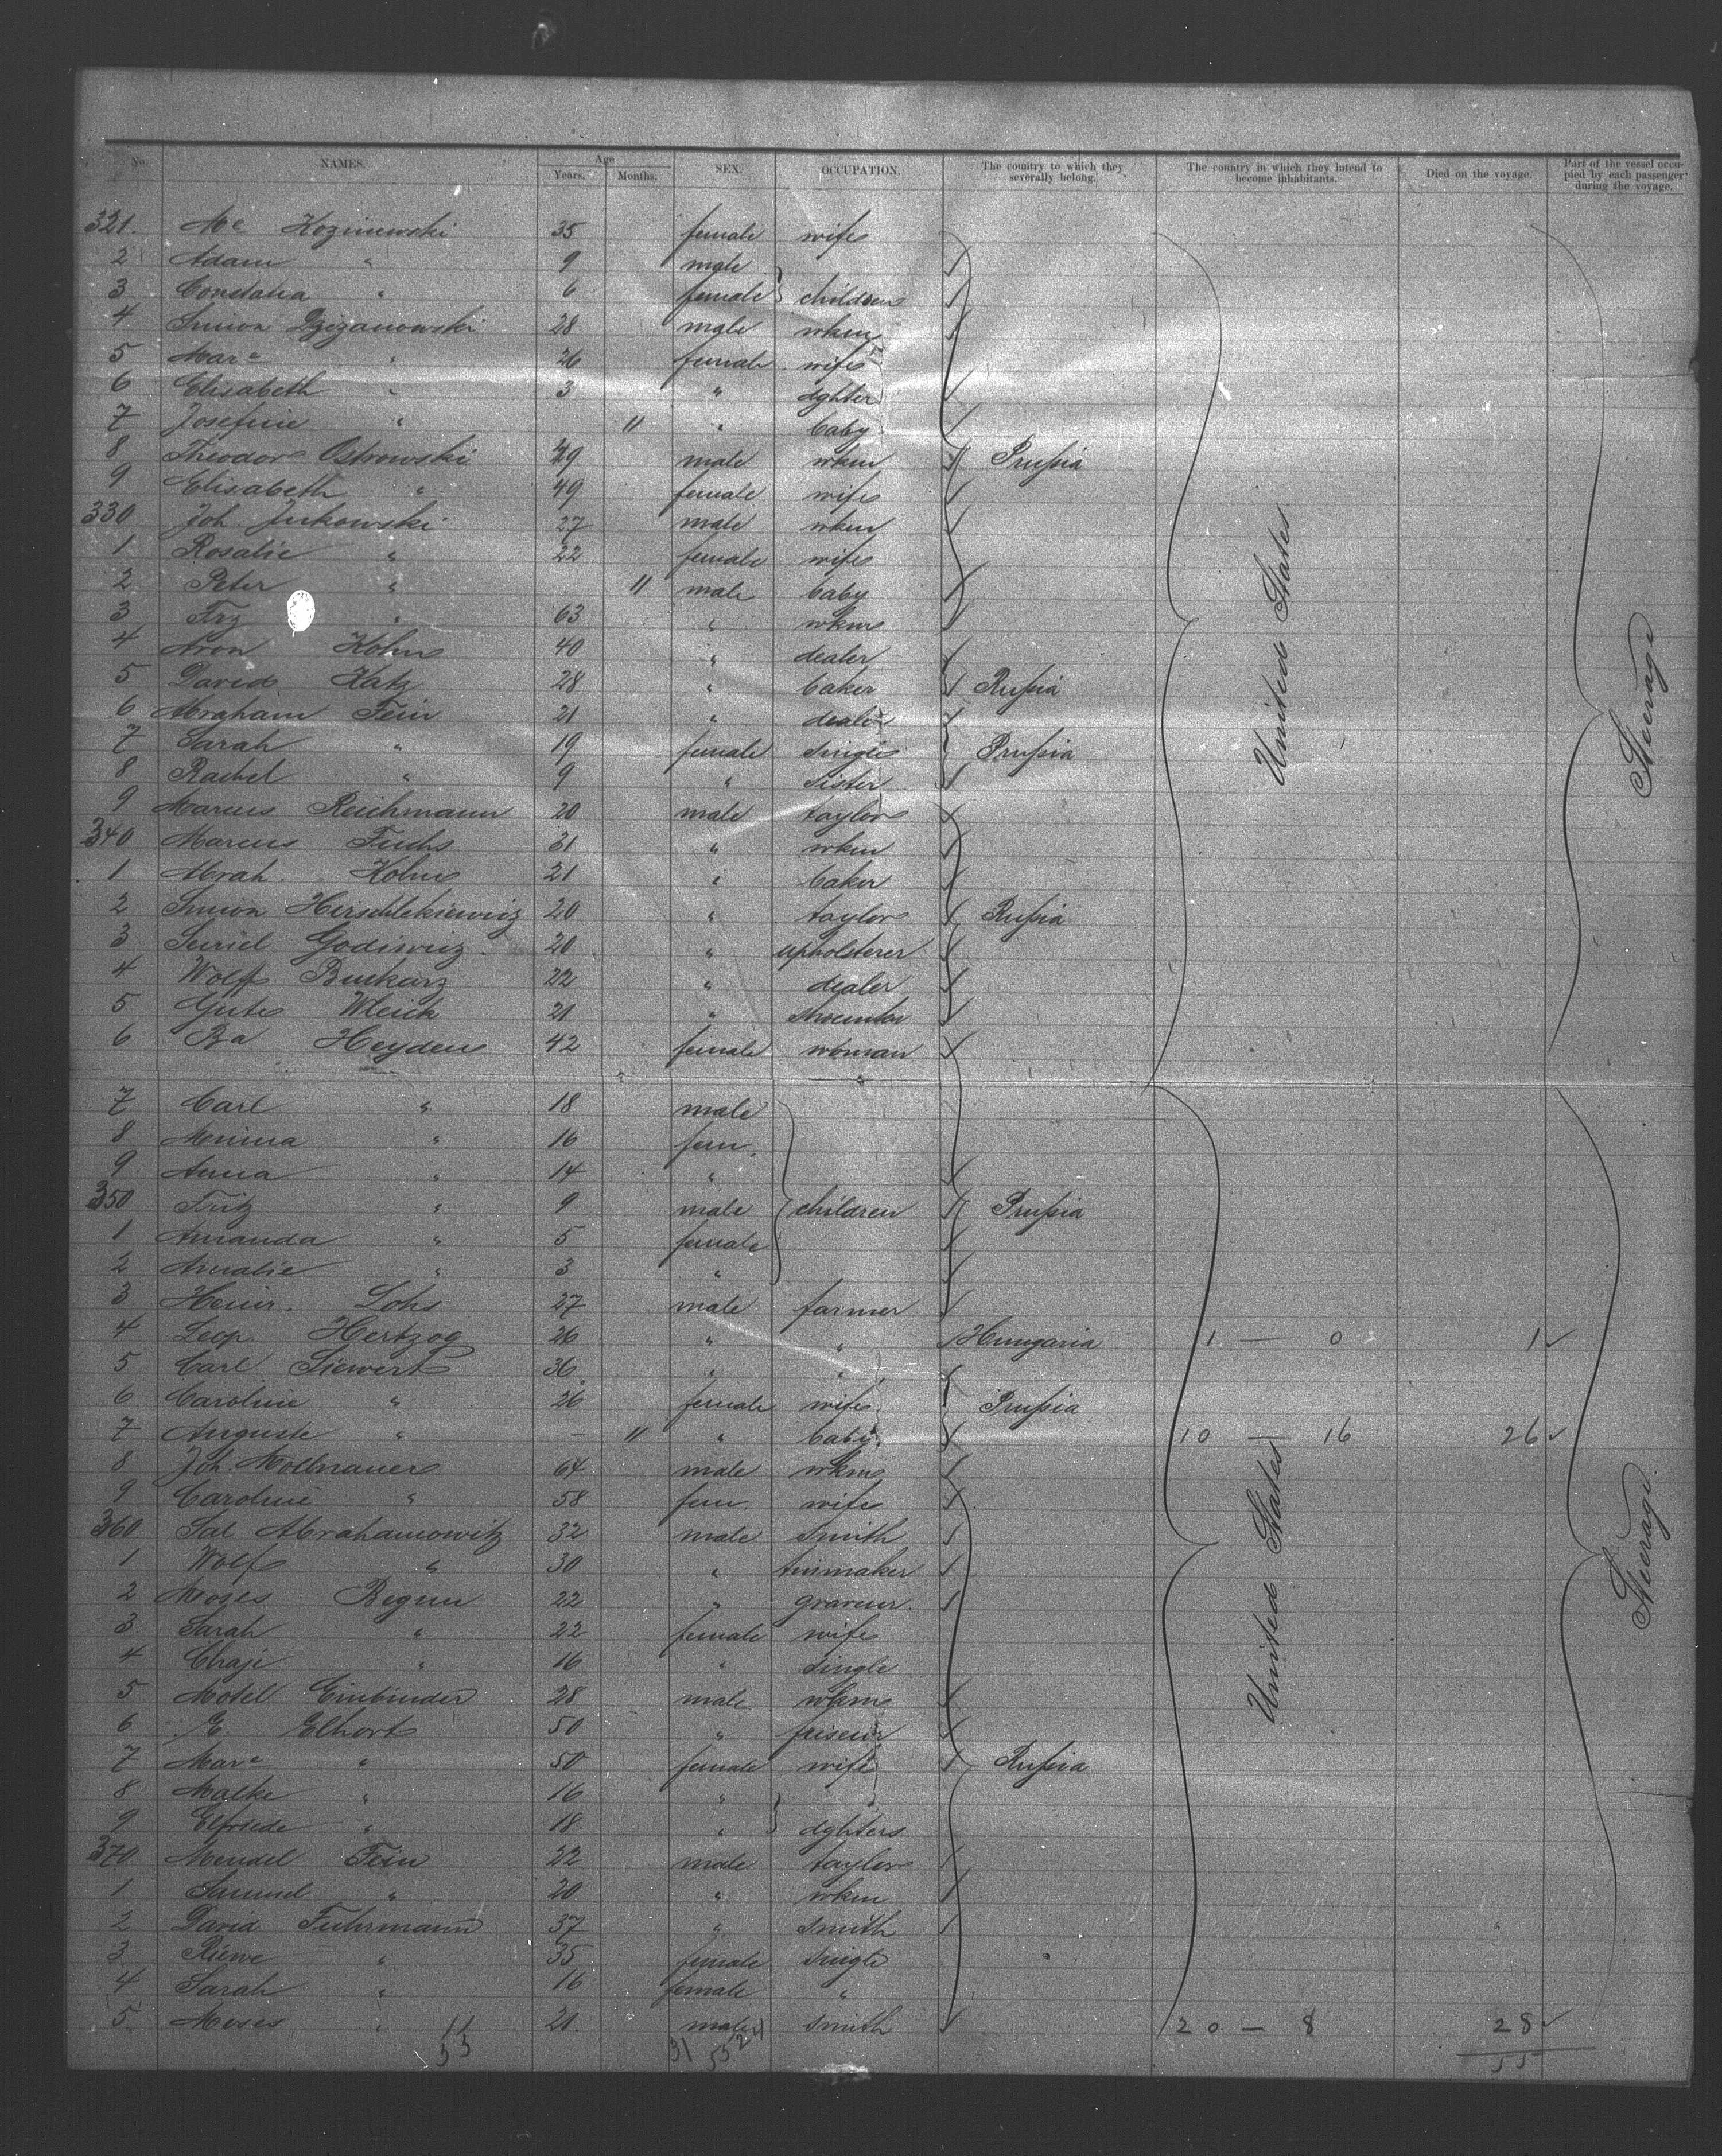 No. NAMES. Age Years. Months. SEX. OCCUPATION. The country to which they severally belong. The country in which they intend to become inhabitants. Died on the voyage. Part of the vessel occupied by each passenger during the voyage.
321. Mc Kozinewski 35 female wife
2 Adam " 9 male
3 Constatia " 6 female children
4 Simon 28 male wkm
5 Mar a " 26 female wife
6 Elisabeth " 3 " dghter
7 Josefine " 11 " baby
8 Theodor Ostrowski 49 male wkm Prußia
9 Elisabeth " 49 female wife
330 Joh. Jukowski 27 male wkm
1 Rosalie " 22 female wife
2 Peter " 11 male baby
3 Frz " 63 " wkm
4 Aron Kohn 40 " dealer
5 David Katz 28 " baker Rußia
6 Abraham Fein 21 " dealer
7 Sarah " 19 female single Prußia
8 Rachel " 9 " sister
9 Marcus Reichmann 20 male taylor
340 Marcus Fuchs 31 " wkm
1 Abrah. Kohn 21 " baker
2 Simon 20 " taylor Rußia
3 20 " upholsterer
4 Wolff 22 " dealer
5 21 "
6 Ba Heyden 42 female woman
7 Carl " 18 male
8 Minna " 16 fem.
9 Anna " 14 "
350 Fritz " 9 male children Prußia
1 Amanda " 5 female
2 Amalie " 3 "
3 Heinr. Lohs 27 male farmer
4 Leop. Hertzog 26 " " Hungaria 1 — 0 1
5 Carl Siewert 36 " "
6 Caroline " 26 female wife Prußia
7 Auguste " - 11 " baby 10 — 16 26
8 Joh. 64 male wkm
9 Caroline " 58 fem. wife
360 Sal Abrahamowitz 32 male smith
1 Wolf " 30 " tinmaker
2 Moses Begun 22 " graveur.
3 Sarah " 22 female wife
4 Chaje " 16 " single
5 Motel Einbinder 28 male wkm
6 E. Elhort 50 " friseur
7 Mar a " 50 female wife Rußia
8 Malke " 16 "
9 Elfriede " 18 " dghters
370 Mendel Fein 22 male taylor
1 Samuel " 20 " wkm
2 David Fuhrmann 37 " smith
3 Riewe " 35 female single
4 Sarah " 16 female "
5. Moses " 21. male smith 20 — 8 28
55
United States
Steerage
United States
Steerage